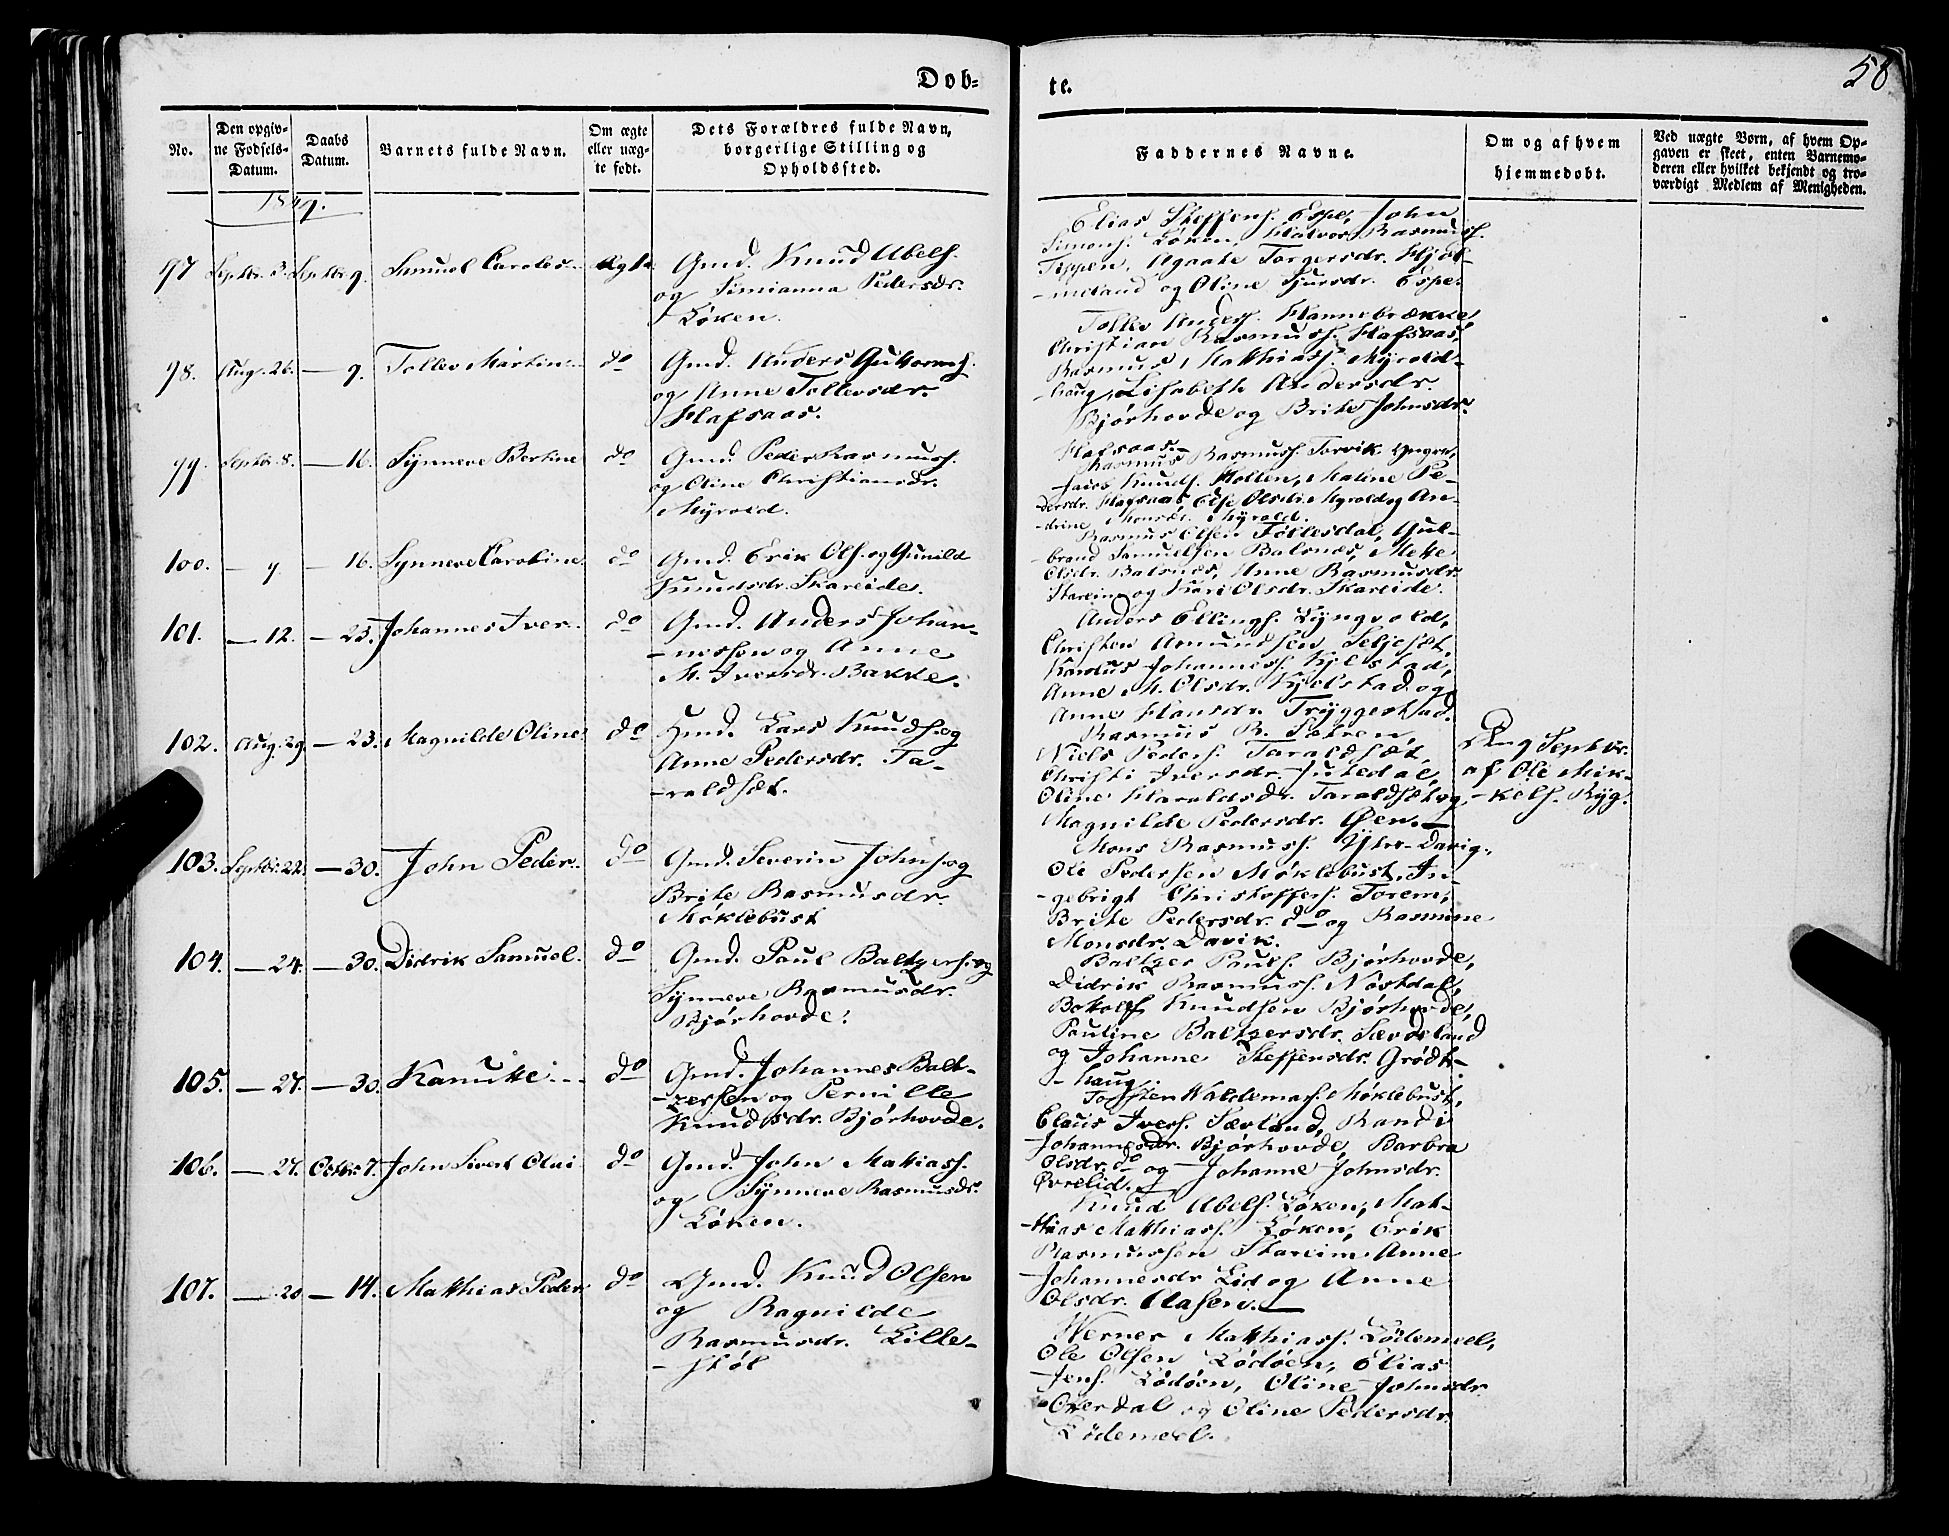 Døb-
te.
58
No.
Den opgiv-
ne Fødsels-
Datum.
Daabs
Datum.
Barnets fulde Navn.
Om ægte
eller uæg-
te født.
Dets Forældres fulde Navn,
borgerlige Stilling og
Opholdssted.
Faddernes Navne.
Om og af hvem
hjemmedøbt.
Ved uægte Børn, af hvem Op-
gaven er skeet, enten Barnemo-
deren eller hvilket bekjendt og tro-
værdigt Medlem af Menigheden.
97 Septbr. 3. Septbr 9. Samuel Carolus. Ægte Gmd. Knud Abels.
og Simianna Pedersdr.
Løken.
Elias Steffens. Espe, John
Simons. Løken, Halvor Rasmuss.
Teppen, Agaate Torgersdr. Hjel-
-meland og Oline Sjursdr. Espe.
98. Aug. 26. — 9. Tollev Martin. do Gmd. Anders Guttorms.
og Anne Tollevsdr.
Hafsaas.
Tollev Anders. Hannebrække,
Christian Rasmuss. Hafsaas,
Rasmus Matthiass. Myrold-
-haug, Lisabeth Andersdr.
Bjørhovde og Brite Johnsdr.
Hafsaas.
99. Septbr. 8. — 16. Synneve Bertine do Gmd. Peder Rasmuss.
og Oline Christiansdr.
Myrold.
Rasmus Rasmuss. Torvik yngre,
Knuds. Holten, Maline Pe-
dersdr. Hafsaas, Else Olsdr. Myrold og An-
-drine Monsdr. Myrold.
100. — 9. — 16. Synneve Caroline. do Gmd. Erik Ols. og Gunild
Knudsdr. Skareide.
Rasmus Olsen Føllesdal, Gul-
-brand Samuelsen Balsnæs, Mette
Olsdr. Balsnæs, Anne Rasmusdr.
Stareim og Kari Olsdr. Skareide.
101. — 12. — 23. Johannes Iver. do Gmd. Anders Johan-
-nessen og Anne
M. Iversdr. Bakke.
Anders Ellings. Lyngvold,
Christen Amundsen Seljeset,
Johannes. Kjelstad,
Anne M. Olsdr. Kjelstad og
Anne Hansdr. Tryggestad.
102. Aug. 29. — 23. Magnilde Oline. do Hmd. Lars Knuds. og
Anne Pedersdr. Ta-
-raldsæt.
Rasmus R.
Niels Peders. Taraldsæt,
Christi Iversdr. Justedal,
Oline Haraldsdr. Taraldsæt og
Magnilde Pedersdr. Øen. —
Septbr.
af Ole Mik-
-kels. Ryg.
103. Septbr. 22. — 30. John Peder. do Gmd. Severin Johns. og
Brite Rasmusdr.
Møklebust
Mons Rasmuss. Ytre-Davig,
Ole Pedersen Møklebust, In-
-gebrigt Christoffers. Torem,
Brite Pedersdr. do og Rasmine
Monsdr. Davik.
104. — 24. — 30. Didrik Samuel. do Gmd. Paul Baltzers. og
Synneve Rasmusdr.
Bjørhovde.
Baltzer Pauls. Bjørhovde,
Didrik Rasmuss. Nøstdal,
Botolf Knudsen Bjørhovde,
Pauline Baltzersdr. Sævdeland
og Johanne Steffensdr. Grødt-
-haug.
105. — 27. — 30. Kanutte do Gmd. Johannes Balt-
-zersen og Pernille
Knudsdr. Bjørhovde.
Torsten Waldemars. Møklebust,
Claus Ivers. Sævland, Randi
Johannesdr. Bjørhovde, Barbra
Olsdr. do og Johanne Johnsdr.
Øvrelid.
106. — 27. Octbr 7. John Sivert Olai do Gmd. John Mathias.
og Synneve Rasmusdr.
Løken.
Knud Abels. Løken, Mat-
-thias Matthiass. Løken, Erik
Rasmussen Stareim Anne
Johannesdr Lid og Anne
Olsdr. Aasen. —
107. — 20 — 14. Matthias Peder do Gmd. Knud Olsen
og Ragnilde
Rasmusdr. Lille-
-støl
Werner Matthiass. Lødemeel,
Ole Olsen Lødøen, Elias
Jens. Lødøen, Oline Johnsdr.
Overdal og Oline Pedersdr.
Lødemeel.